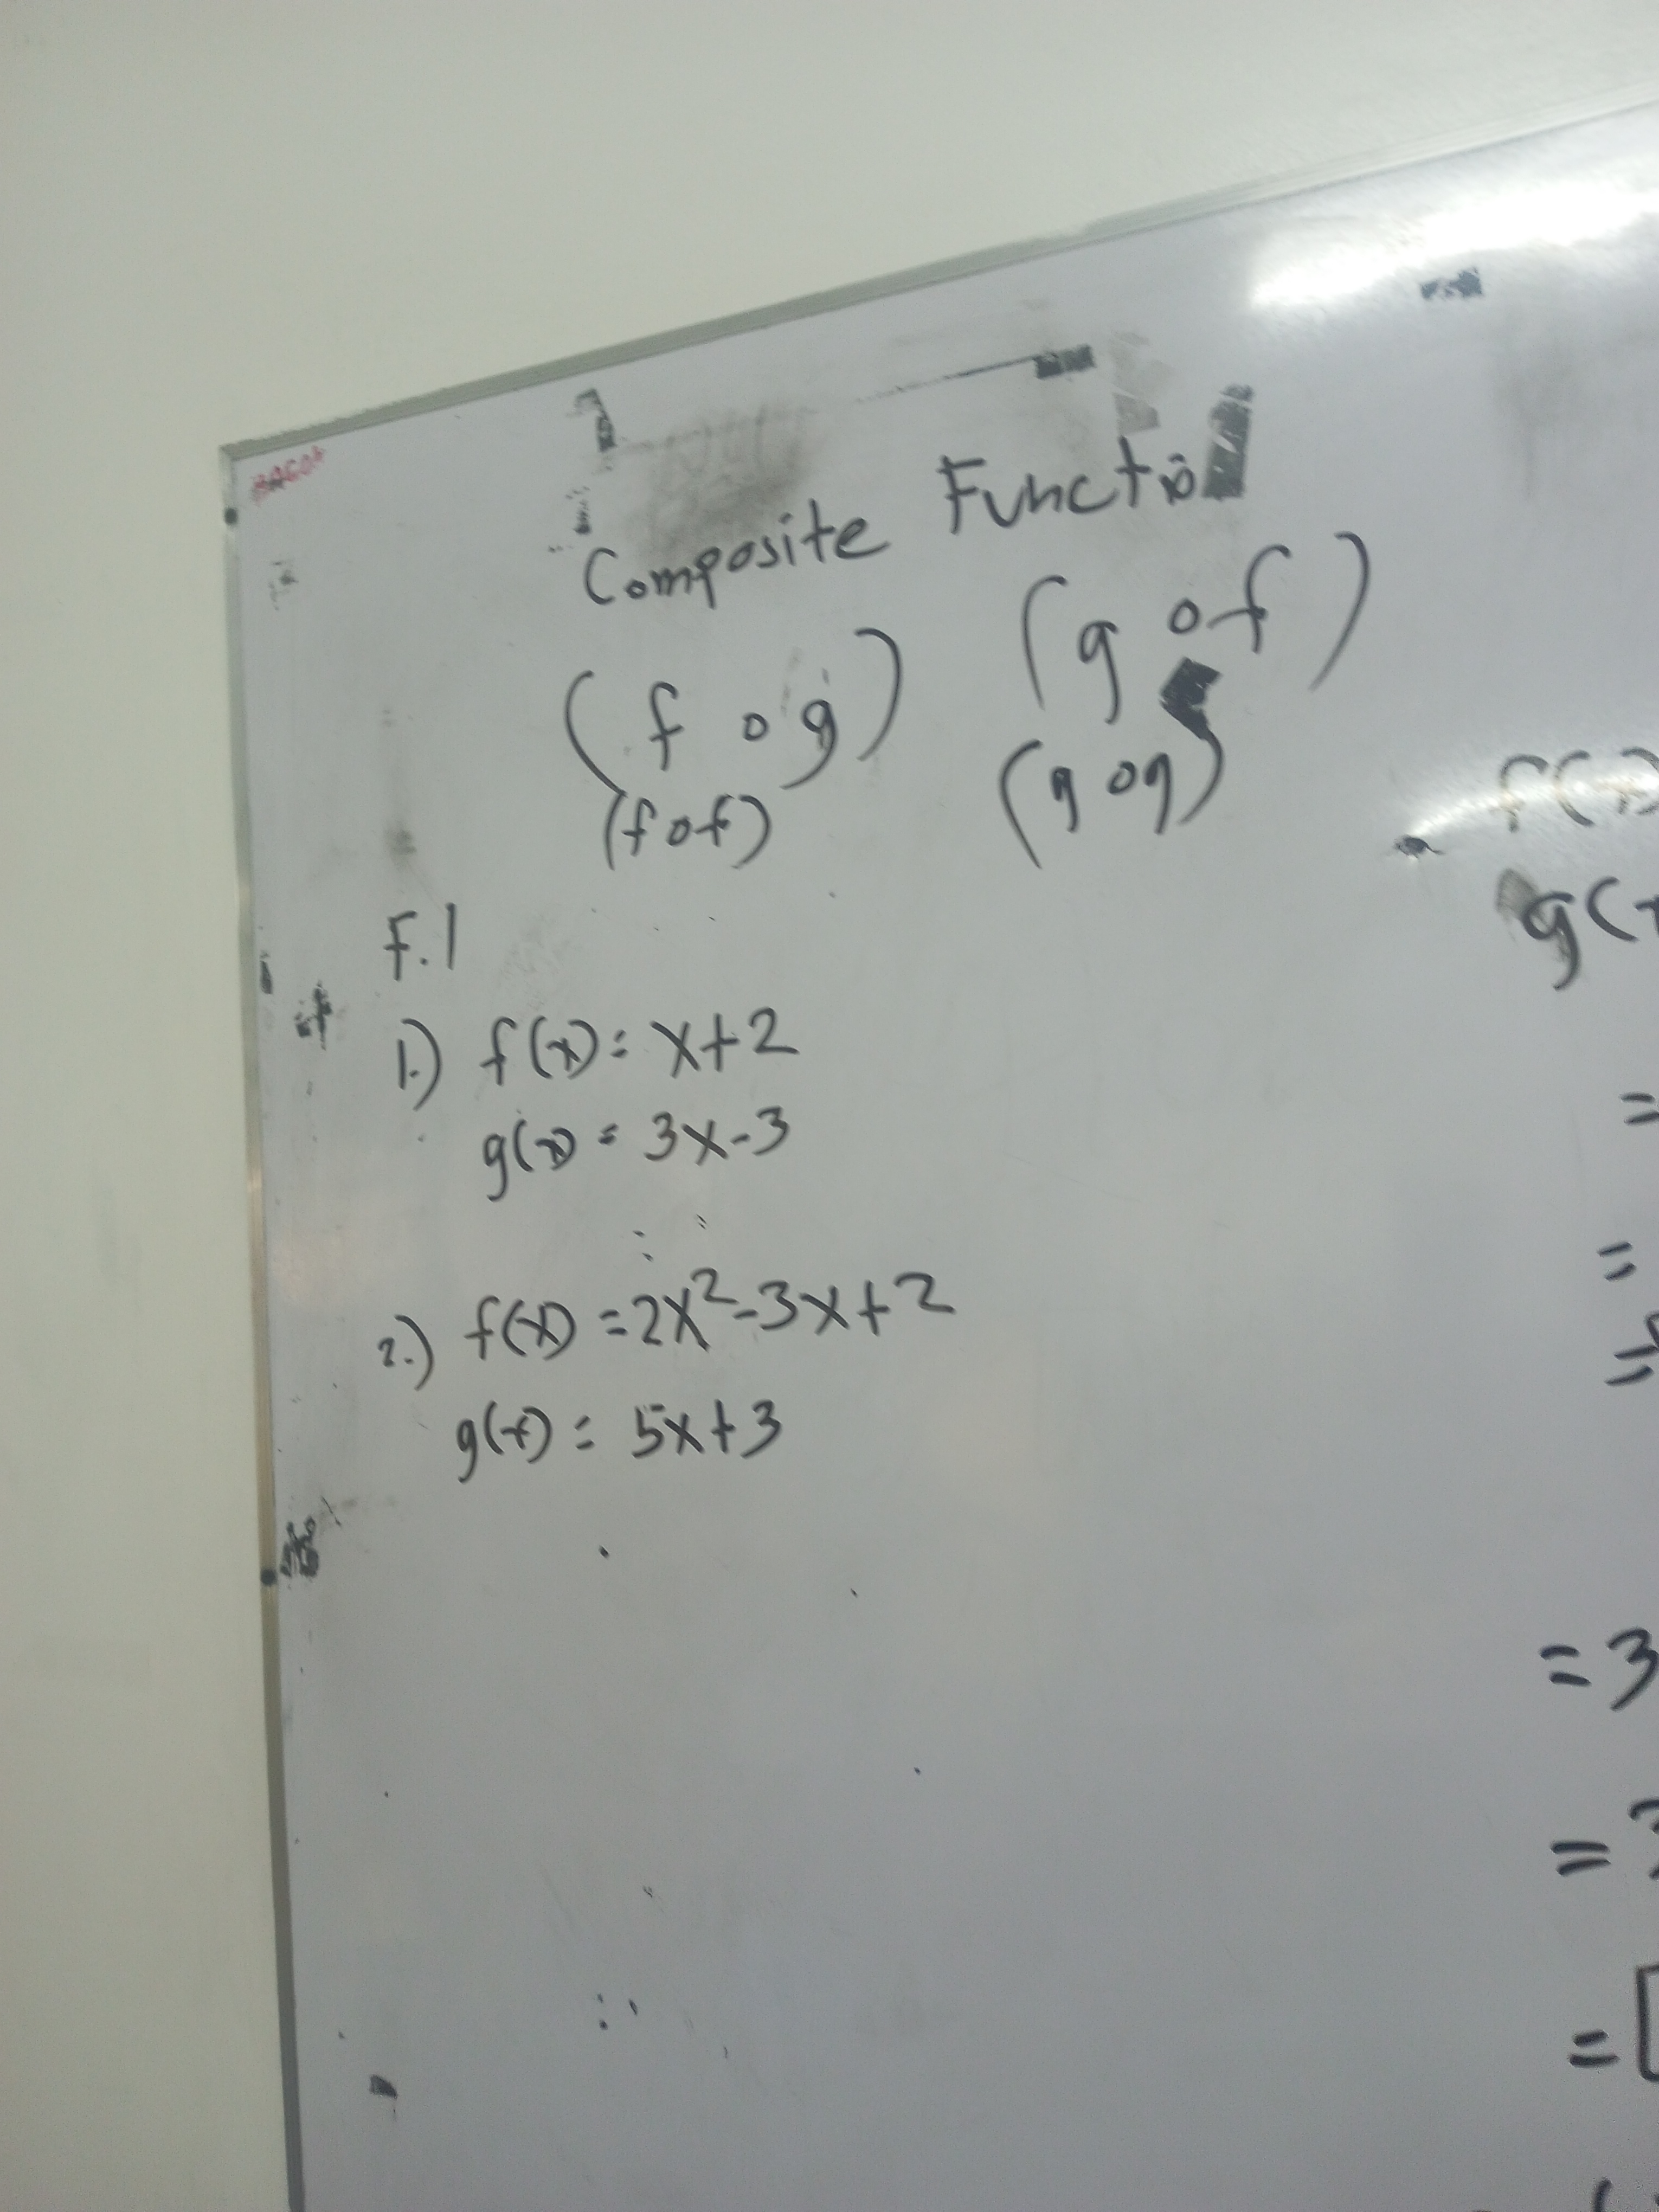 Composite Functio
(f o g) (g o f)
(f o f) (g o g)
F.1
1.) f(x) = x+2
g(x) = 3x-3
2.) f(x) = 2x²-3x+2
g(x) = 5x+3
f(x)
g(
=
=
=
= 3
=
=